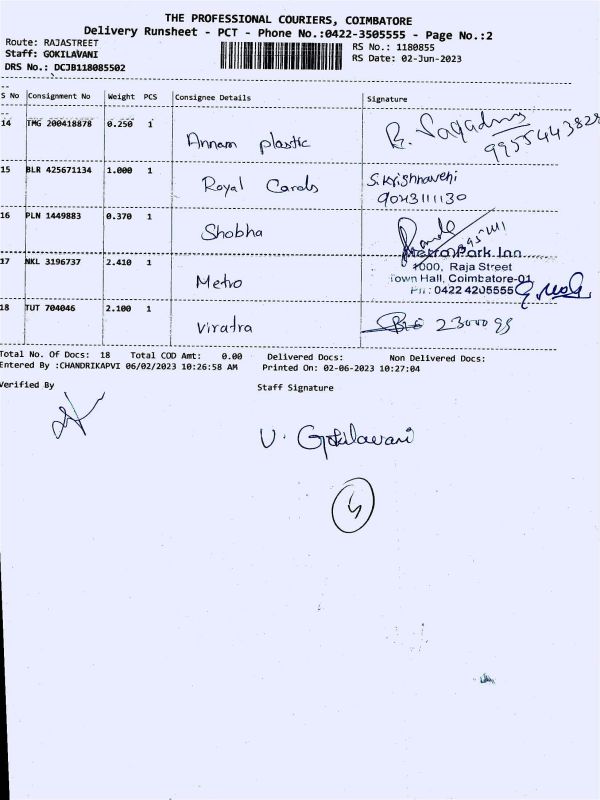 THE PROFESSIONAL COURIERS, COIMBATORE
Delivery Runsheet - PCT - Phone No.:0422-3505555 - Page No.:2
Route: RAJASTREET
RS No.: 1180855
Staff: GOKILAVANI
RS Date: 02-Jun-2023
DRS No.: DCJB118085502
S No Consignment No Weight PCS Consignee Details Signature
14 TMG 200418878 0.250 1 Annam plastic
15 BLR 425671134 1.000 1 Royal Cards S.Krishnaveni
9043111130
16 PLN 1449883 0.370 1 Shobha
Metro Park Inn
1000, Raja Street
Town Hall, Coimbatore-01
Ph : 0422 4205555
17 NKL 3196737 2.410 1 Metro
18 TUT 704046 2.100 1 Viratra
Total No. Of Docs: 18 Total COD Amt: 0.00 Delivered Docs: Non Delivered Docs:
Entered By :CHANDRIKAPVI 06/02/2023 10:26:58 AM Printed On: 02-06-2023 10:27:04
Verified By Staff Signature
V. Gokilavani